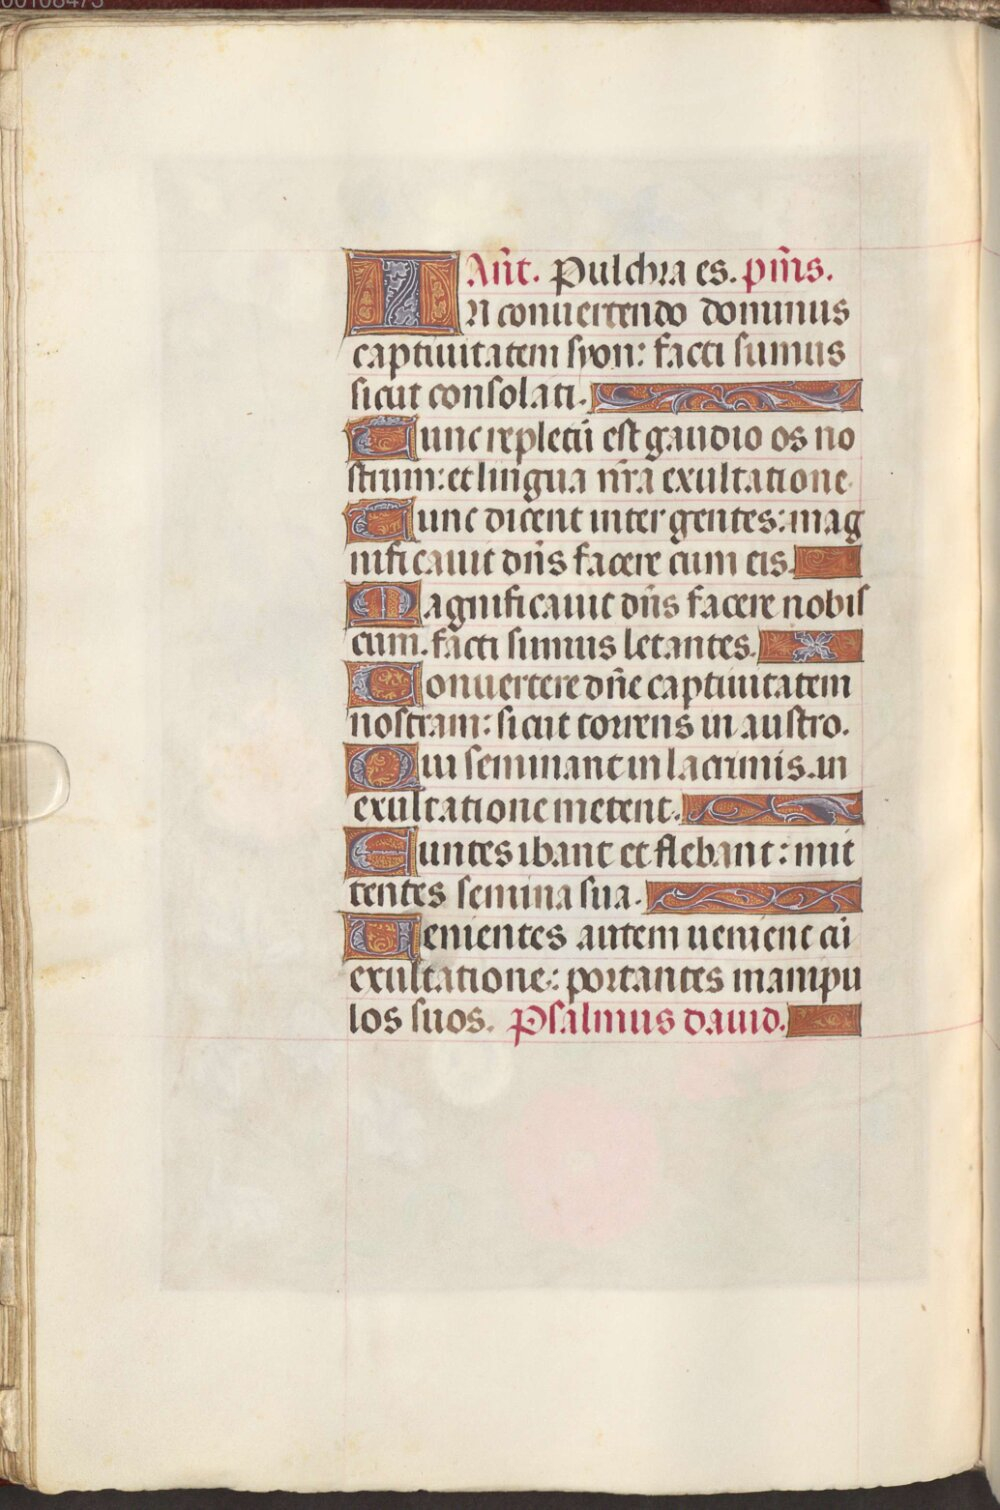 Añt. Pulchra es. pm̃s.
IN conuertendo dominus
captiuitatem syon: facti sumus
sicut consolati.
Tunc repletū est gaudio os no
strum: et lingua nr̃a exultatione
Tunc dicent inter gentes: mag
nificauit dñs facere cum eis.
Magnificauit dñs facere nobis
cum. facti sumus letantes.
Conuertere dñe captiuitatem
nostram: sicut torrens in austro.
Qui seminant in lacrimis. in
exultatione metent.
Euntes ibant et flebant: mit
tentes semina sua.
Uenientes autem uenient cū
exultatione: portantes manipu
los suos. Psalmus dauid.